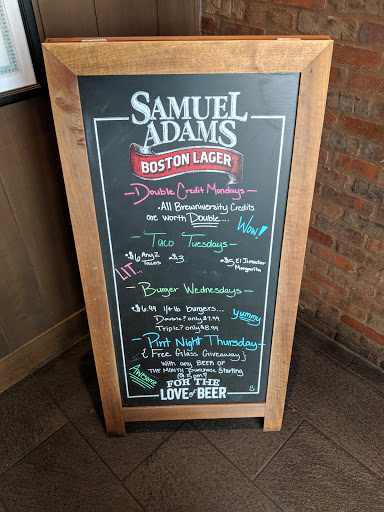 SAMUEL
ADAMS
BOSTON LAGER
Double Credit Mondays
•All Brewniversity Credits
are worth Double...
Wow!
Taco Tuesdays
•$6 Any 2 Tacos
•$3
•$5 El Jimador Margarita
LIT
Burger Wednesdays
•$6.99 1/4 lb burgers...
Double? only $7.99
Triple? only $8.99
Yummy
Pint Night Thursday
{Free Glass Giveaway}
with any BEER OF
THE MONTH purchase starting
@ 5pm?
Awesome
FOR THE
LOVE of BEER